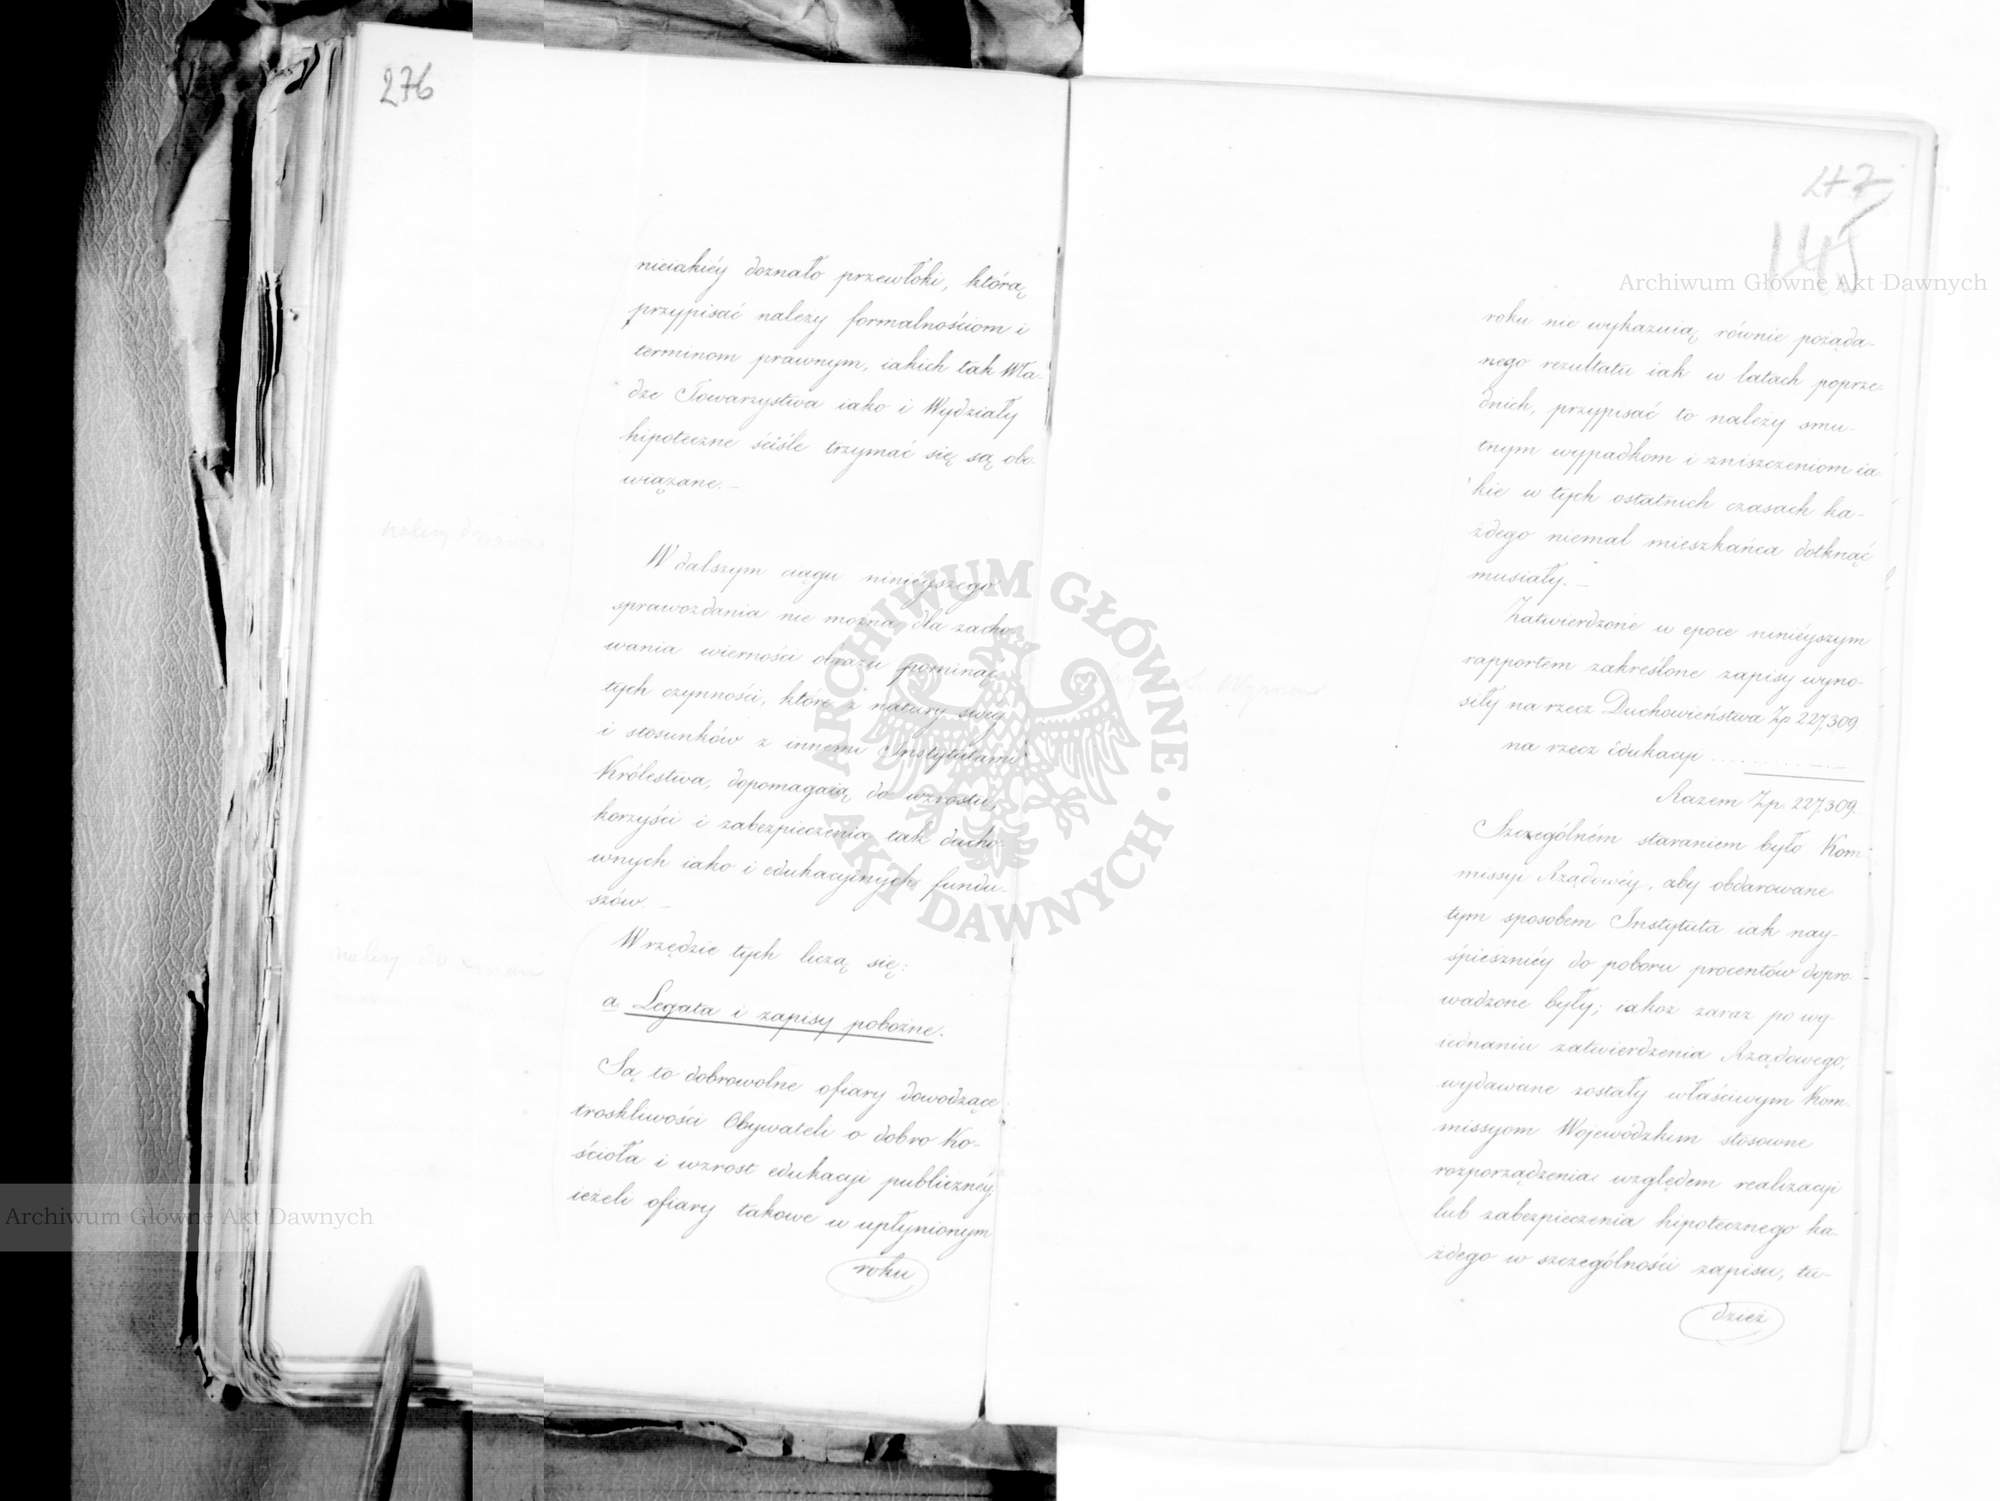 276
nieiakiéy doznało przewłoki, którą
przypisać należy formalnościom i
terminom prawnym, iakich tak Wła-
dze Towarzystwa iako i Wydziały
hipoteczne ściśle trzymać się są obo-
wiązane.–
W dalszym ciągu niniéyszego
sprawozdania nie można, dla zacho-
wania wierności obrazu pominąć
tych czynności, które z natury swéy
i stosunków z innemi Instytutami
Królestwa, dopomagaią do wzrostu,
korzyści i zabezpieczenia tak ducho-
wnych iako i edukacyinych fundu-
szów.–
W rzędzie tych liczą się:
a. Legata i zapisy pobożne.
Są to dobrowolne ofiary dowodzące
troskliwości Obywateli o dobro Ko-
ścioła i wzrost edukacyi publicznéy,
ieżeli ofiary takowe w upłynionym
roku
145
roku nie wykazuią równie pożąda-
nego rezultatu iak w latach poprze-
dnich, przypisać to należy smu-
tnym wypadkom i zniszczeniom ia-
kie w tych ostatnich czasach ka-
żdego niemal mieszkańca dotknąć
musiały.–
Zatwierdzone w epoce niniéyszym
rapportem zakreślone zapisy wyno-
siły na rzecz Duchowieństwa Zp 227,309
na rzecz Edukacyi ..........
Razem Zp. 227,309.
Szczególném staraniem było Kom-
missyi Rządowéy, aby obdarowane
tym sposobem Instytuta iak nay-
śpieszniéy do poboru procentów dopro-
wadzone były; iakoż zaraz po wy-
iednaniu zatwierdzenia Rządowego,
wydawane zostały właściwym Kom-
missyom Wojewódzkim stosowne
rozporządzenia względem realizacyi
lub zabezpieczenia hipotecznego ka-
żdego w szczególności zapisu, tu-
dzież
Archiwum Główne Akt Dawnych
Archiwum Główne Akt Dawnych
ARCHIWUM GŁÓWNE
AKT DAWNYCH